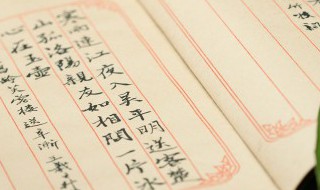 寒雨連江夜入吳平明送客楚
山孤洛陽親友如相問一片冰
心在玉壺
芙蓉樓送辛漸